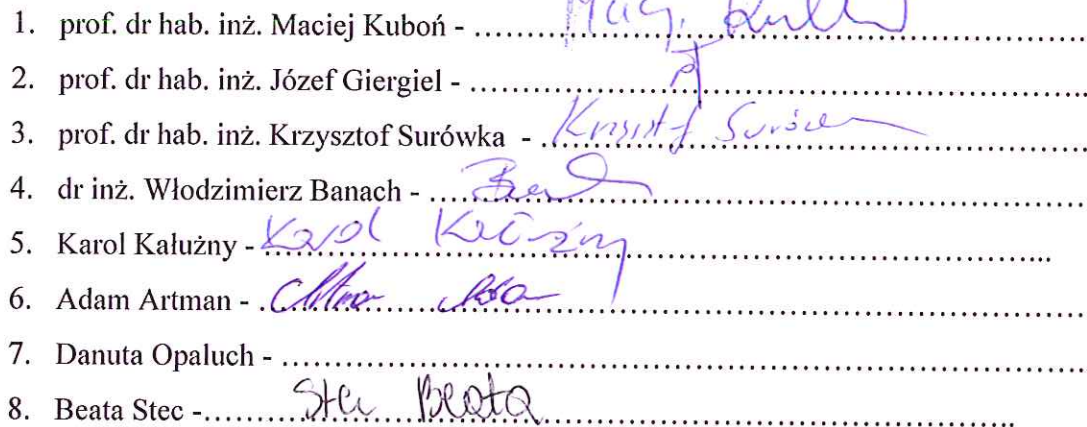 1. prof. dr hab. inż. Maciej Kuboń - ........................ Maciej Kuboń
2. prof. dr hab. inż. Józef Giergiel - ........................
3. prof. dr hab. inż. Krzysztof Surówka - ........ Krzysztof Surówka
4. dr inż. Włodzimierz Banach - ........................
5. Karol Kałużny - Karol Kałużny ........................
6. Adam Artman - ........................
7. Danuta Opaluch - ........................
8. Beata Stec - ........ Stec Beata ........................